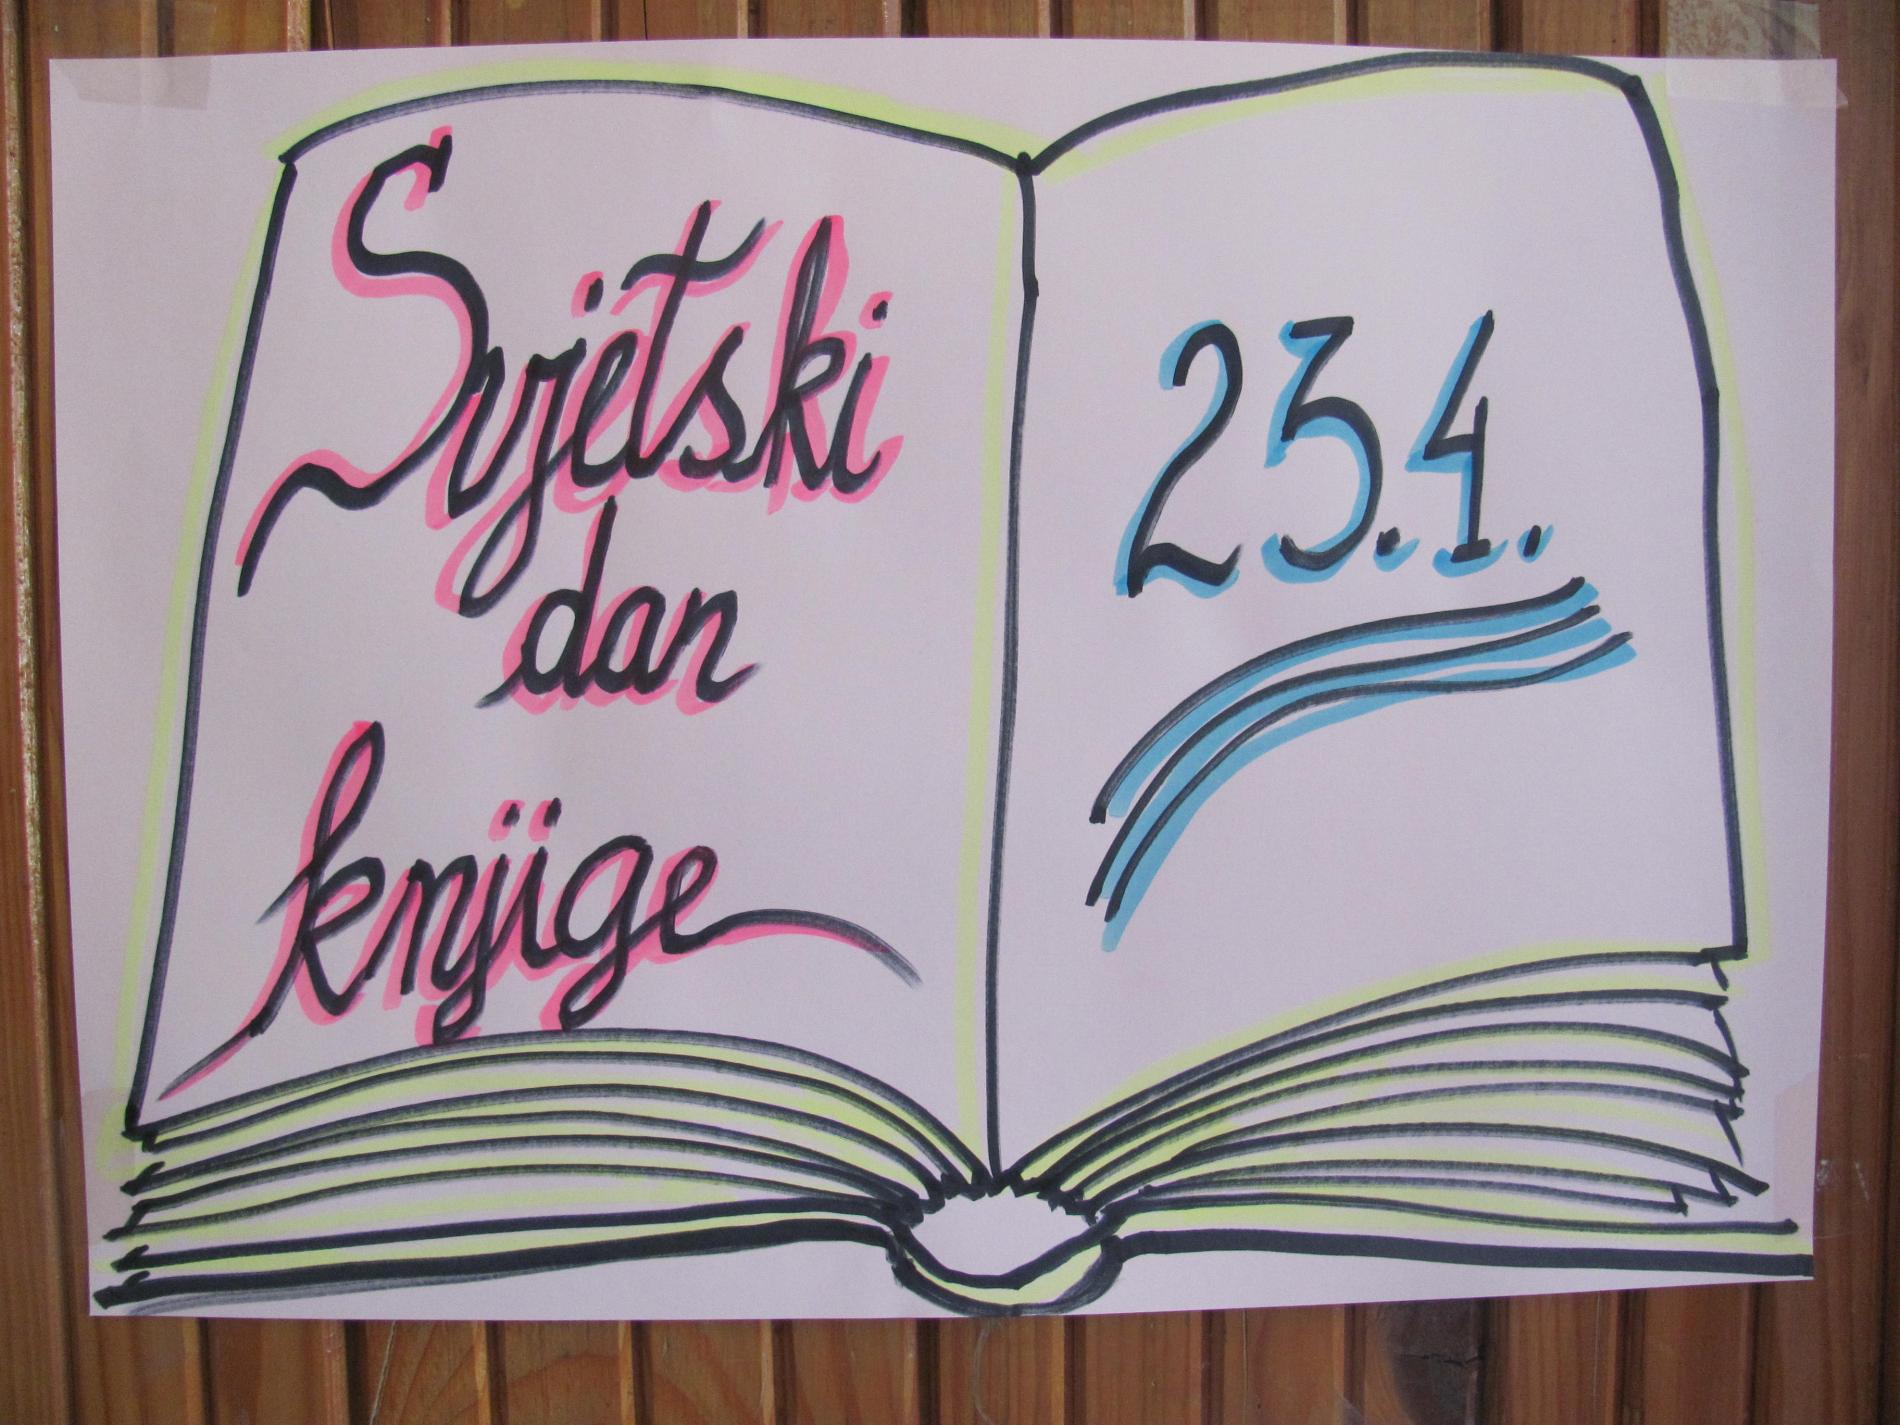 Svjetski
dan
knjige
23.4.